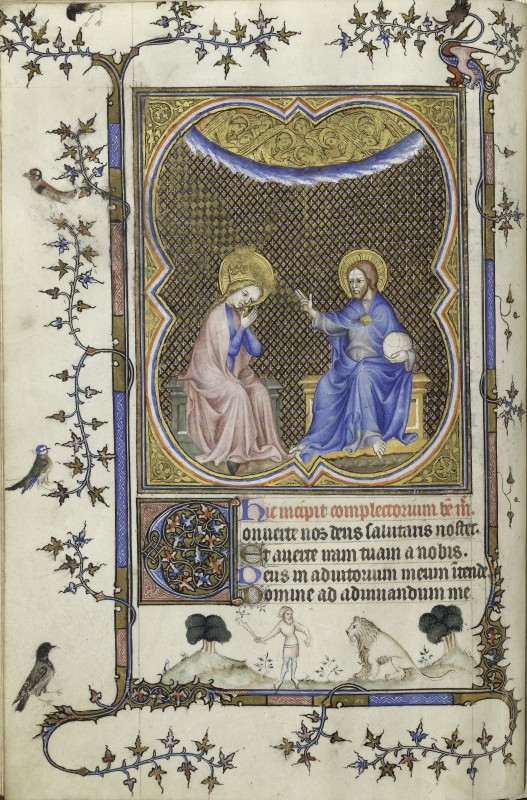 hic incipit complectorium bē m̄.
Conuerte nos deus salutaris noster.
Et auerte iram tuam a nobis.
Deus in adiutorium meum intende
Domine ad adiuuandum me